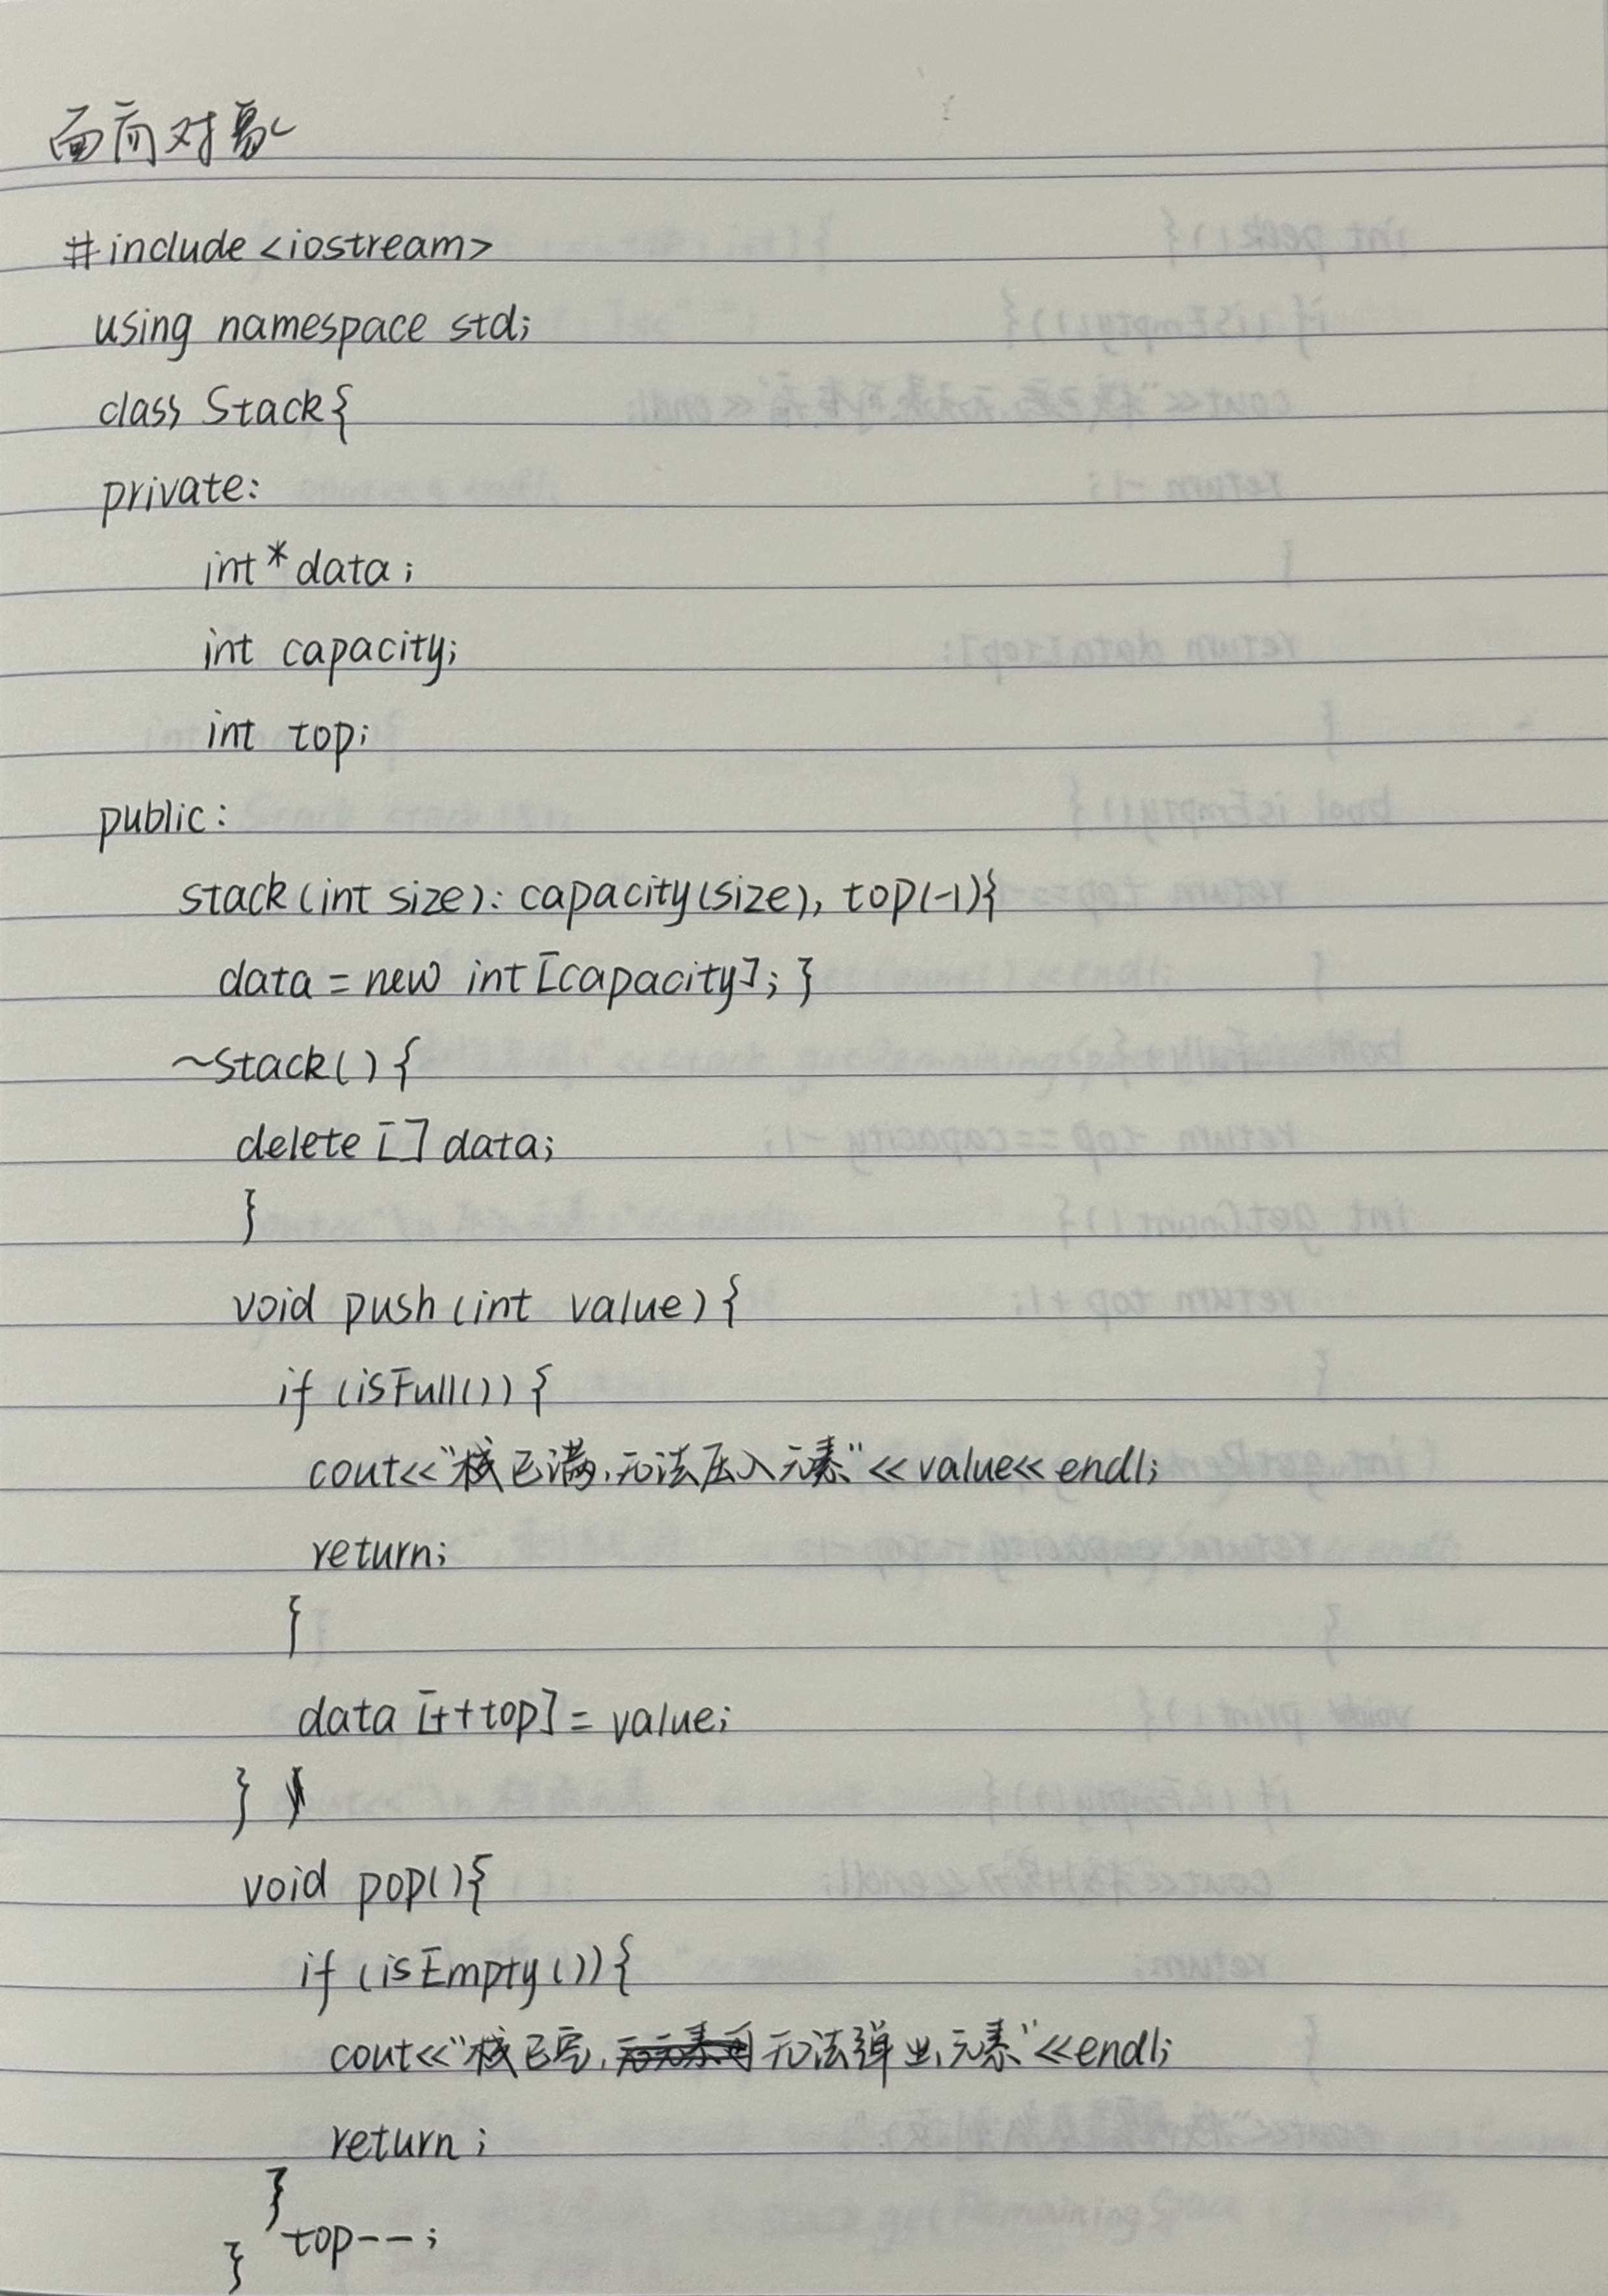 面向对象
#include <iostream>
using namespace std;
class Stack{
private:
int* data;
int capacity;
int top;
public:
stack(int size): capacity(size), top(-1){
data = new int [capacity]; }
~stack() {
delete [] data;
}
void push (int value) {
if (isFull()) {
cout<<"栈已满,无法压入元素"<<value<<endl;
return;
}
data [++top] = value;
}
void pop(){
if (isEmpty()){
cout<<"栈已空,无法弹出元素"<<endl;
return;
}
top--;
}